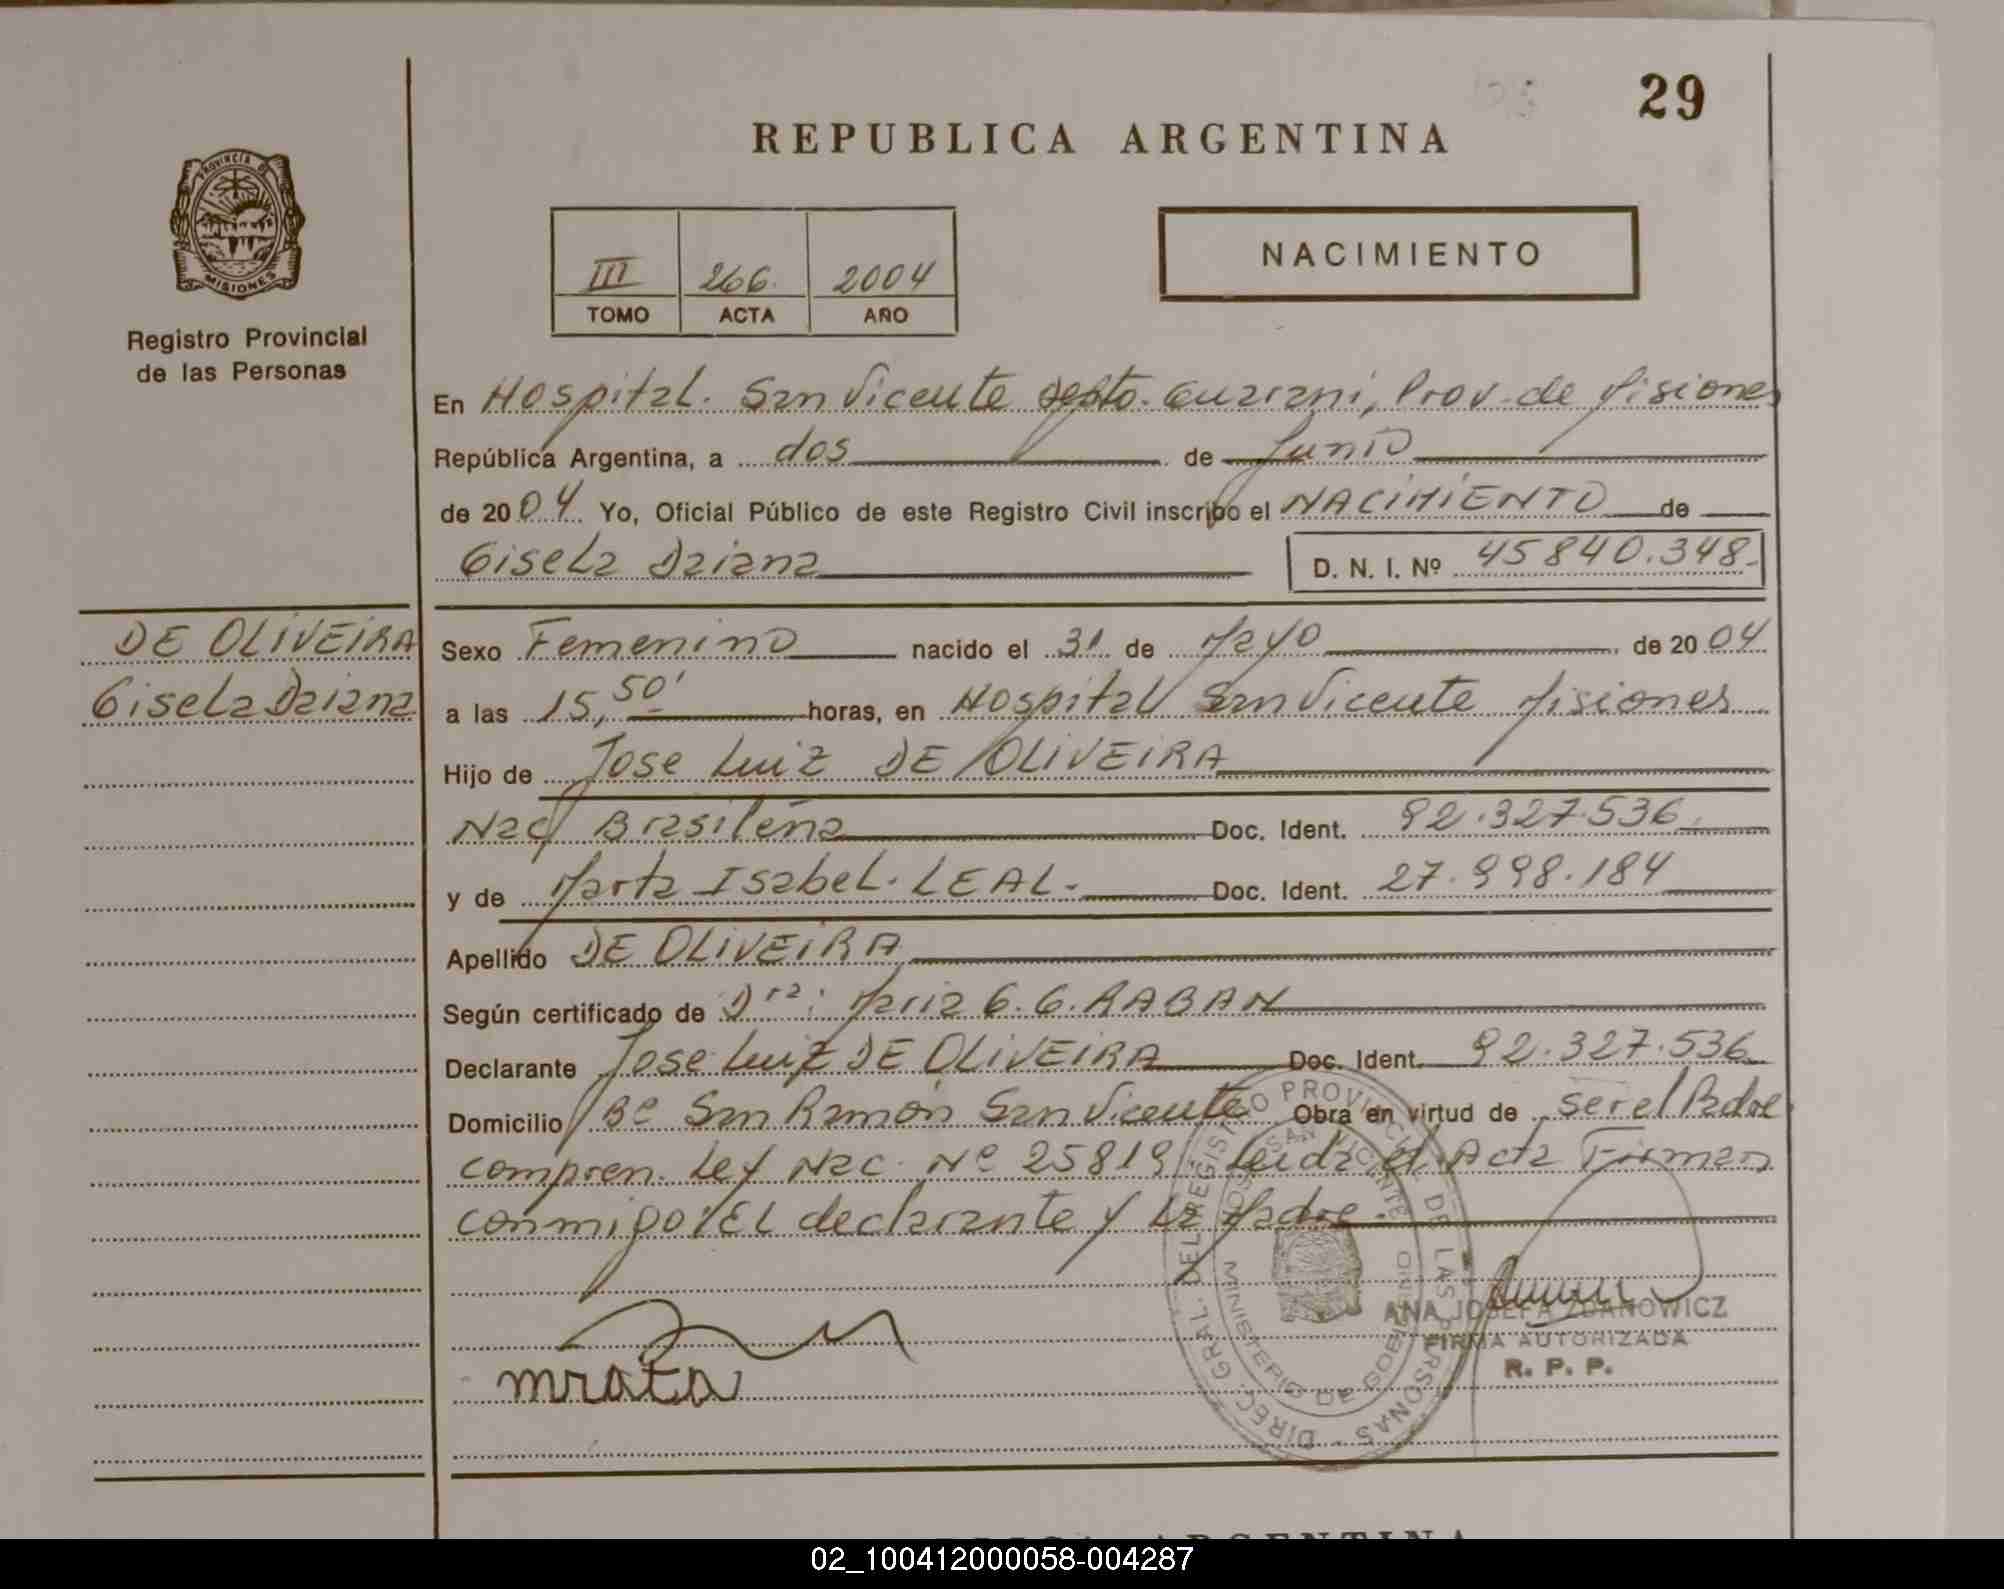 29
REPUBLICA ARGENTINA
PROVINCIA DE
MISIONES
Registro Provincial
de las Personas
III 266. 2004
TOMO ACTA AÑO
NACIMIENTO
En Hospital. San Vicente Depto. Guarani, Prov. de Misiones
República Argentina, a dos de Junio
de 2004 Yo, Oficial Público de este Registro Civil inscribo el NACIMIENTO de
Gisela Daiana D. N. I. Nº 45840.348.
DE OLIVEIRA
Gisela Daiana
Sexo Femenino nacido el 31 de Mayo de 2004
a las 15,50' horas, en Hospital San Vicente Misiones
Hijo de Jose Luiz DE OLIVEIRA
Nac Brasileña Doc. Ident. 92.327.536.
y de Marta Isabel. LEAL. Doc. Ident. 27.998.184
Apellido DE OLIVEIRA
Según certificado de Dra: Maria G. G. RABAN
Declarante Jose Luiz DE OLIVEIRA Doc. Ident. 92.327.536
Domicilio Bº San Ramón San Vicente Obra en virtud de ser el Padre
compren. Ley Nac. Nº 25819 Leida el Acta Firman
conmigo: EL declarante y La Madre.
DIREC. GRAL. DEL REGISTRO PROVINCIAL DE LAS PERSONAS
HOSP. SAN VICENTE
MINISTERIO DE GOBIERNO
ANA JOSEFA ZDANOWICZ
FIRMA AUTORIZADA
R. P. P.
mrata
02_100412000058-004287